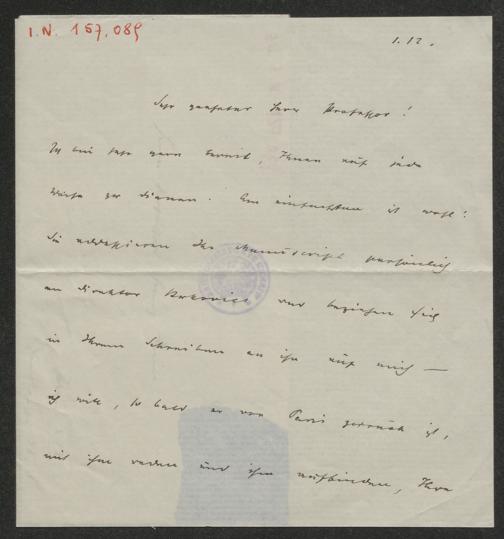 I.N. 157.089
1.12.
Sehr geehrter Herr Professor!
Ich bin sehr gern bereit, Ihnen auf jede
Weise zu dienen. Am einfachsten ist wohl:
Sie adressieren Ihr Manuscript persönlich
an Direktor und beziehen sich
in Ihrem Schreiben an ihn auf mich —
ich will, so bald er von Paris zurück ist,
mit ihm reden und ihm aufbinden, Ihre